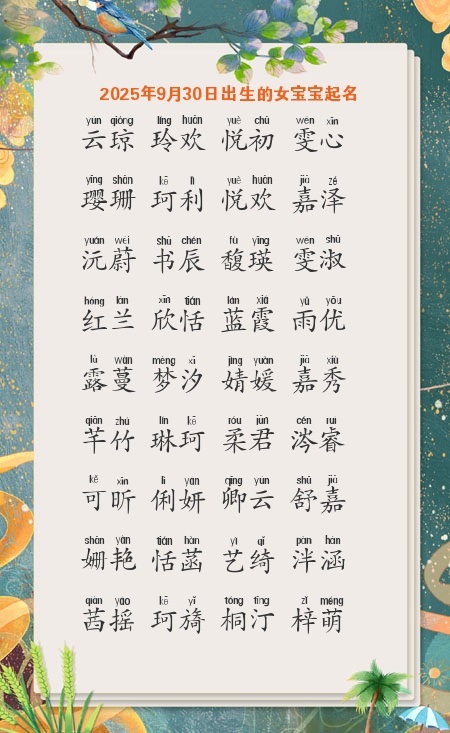 2025年9月30日出生的女宝宝起名
yún qióng líng huān yuè chū wén xīn
云琼 玲欢 悦初 雯心
yīng shān kē lì yuè huān jiā zé
璎珊 珂利 悦欢 嘉泽
yuán wèi shū chén fù yīng wén shū
沅蔚 书辰 馥瑛 雯淑
hóng lán xīn tián lán xiá yǔ yōu
红兰 欣恬 蓝霞 雨优
lù wàn mèng xī jìng yuàn jiā xiù
露蔓 梦汐 婧媛 嘉秀
qiān zhú lín kē róu jūn cén ruì
芊竹 琳珂 柔君 涔睿
kě xīn lì yán qīng yún shū jiā
可昕 俐妍 卿云 舒嘉
shān yàn tián hàn yì qǐ pàn hán
姗艳 恬菡 艺绮 泮涵
qiàn yáo kē yǐ tóng tīng zǐ méng
茜摇 珂旖 桐汀 梓萌